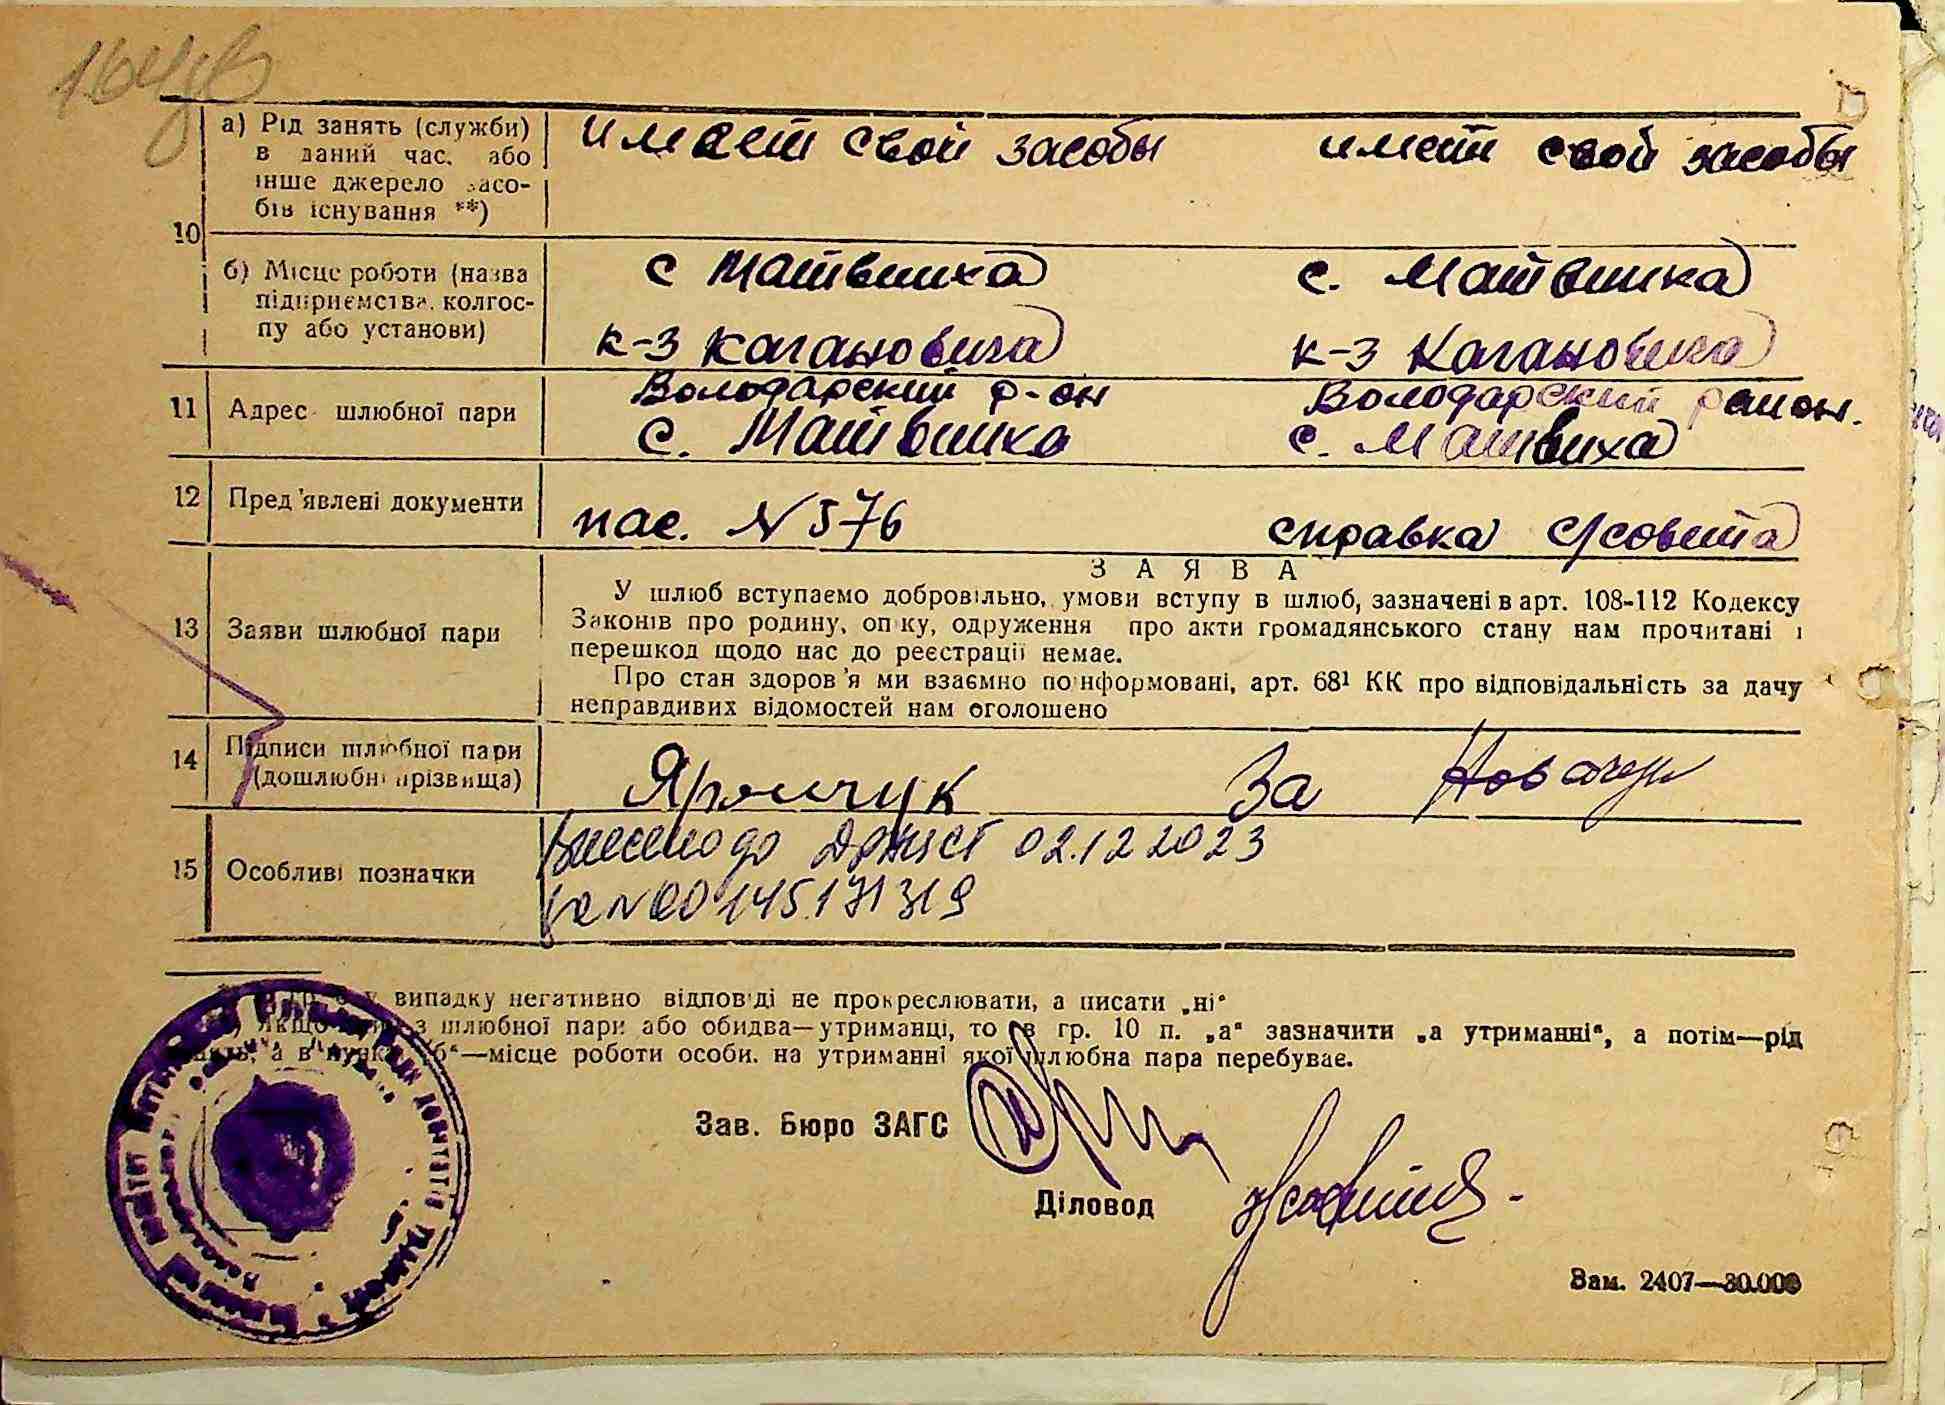 а) Рід занять (служби) имеет свой засобы имеет свой засобы
в даний час, або
інше джерело засо-
бів існування **)
10
б) Місце роботи (назва с Матвииха с. Матвииха
підприємства, колгос-
пу або установи) к-з Кагановича к-з Кагановича
Володарский р-он Володарский район.
11 Адрес шлюбної пари с. Матвииха с. Матвиха
12 Пред'явлені документи пас. N 576 справка с/совета
З А Я В А
У шлюб вступаємо добровільно, умови вступу в шлюб, зазначені в арт. 108-112 Кодексу
13 Заяви шлюбної пари Законів про родину, опіку, одруження про акти громадянського стану нам прочитані і
перешкод щодо нас до реєстрації немає.
Про стан здоров'я ми взаємно поінформовані, арт. 68¹ КК про відповідальність за дачу
неправдивих відомостей нам оголошено
14 Підписи шлюбної пари Яремчук За
(дошлюбні прізвища)
Внесено до ДРАЦСГ 02.12 2023
15 Особливі позначки за №00145171319
у випадку негативно відповіді не прокреслювати, а писати „ні“
якщо з шлюбної пари або обидва—утриманці, то в гр. 10 п. „а“ зазначити „а утриманні“, а потім—рід
а в пункті „б“—місце роботи особи, на утриманні якої шлюбна пара перебуває.
Зав. Бюро ЗАГС
Діловод
Зам. 2407—30.000